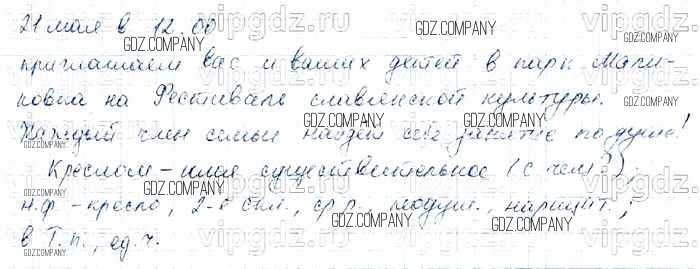 21 мая в 12.00
приглашаем вас и ваших детей в парк Мали-
новка на Фестиваль славянской культуры.
Каждый член семьи найдёт себе занятие по душе!
Креслом – имя существительное (с чем?);
н.ф. – кресло, 2-е скл., ср.р., неодуш., нариц.;
в Т.п., ед.ч.